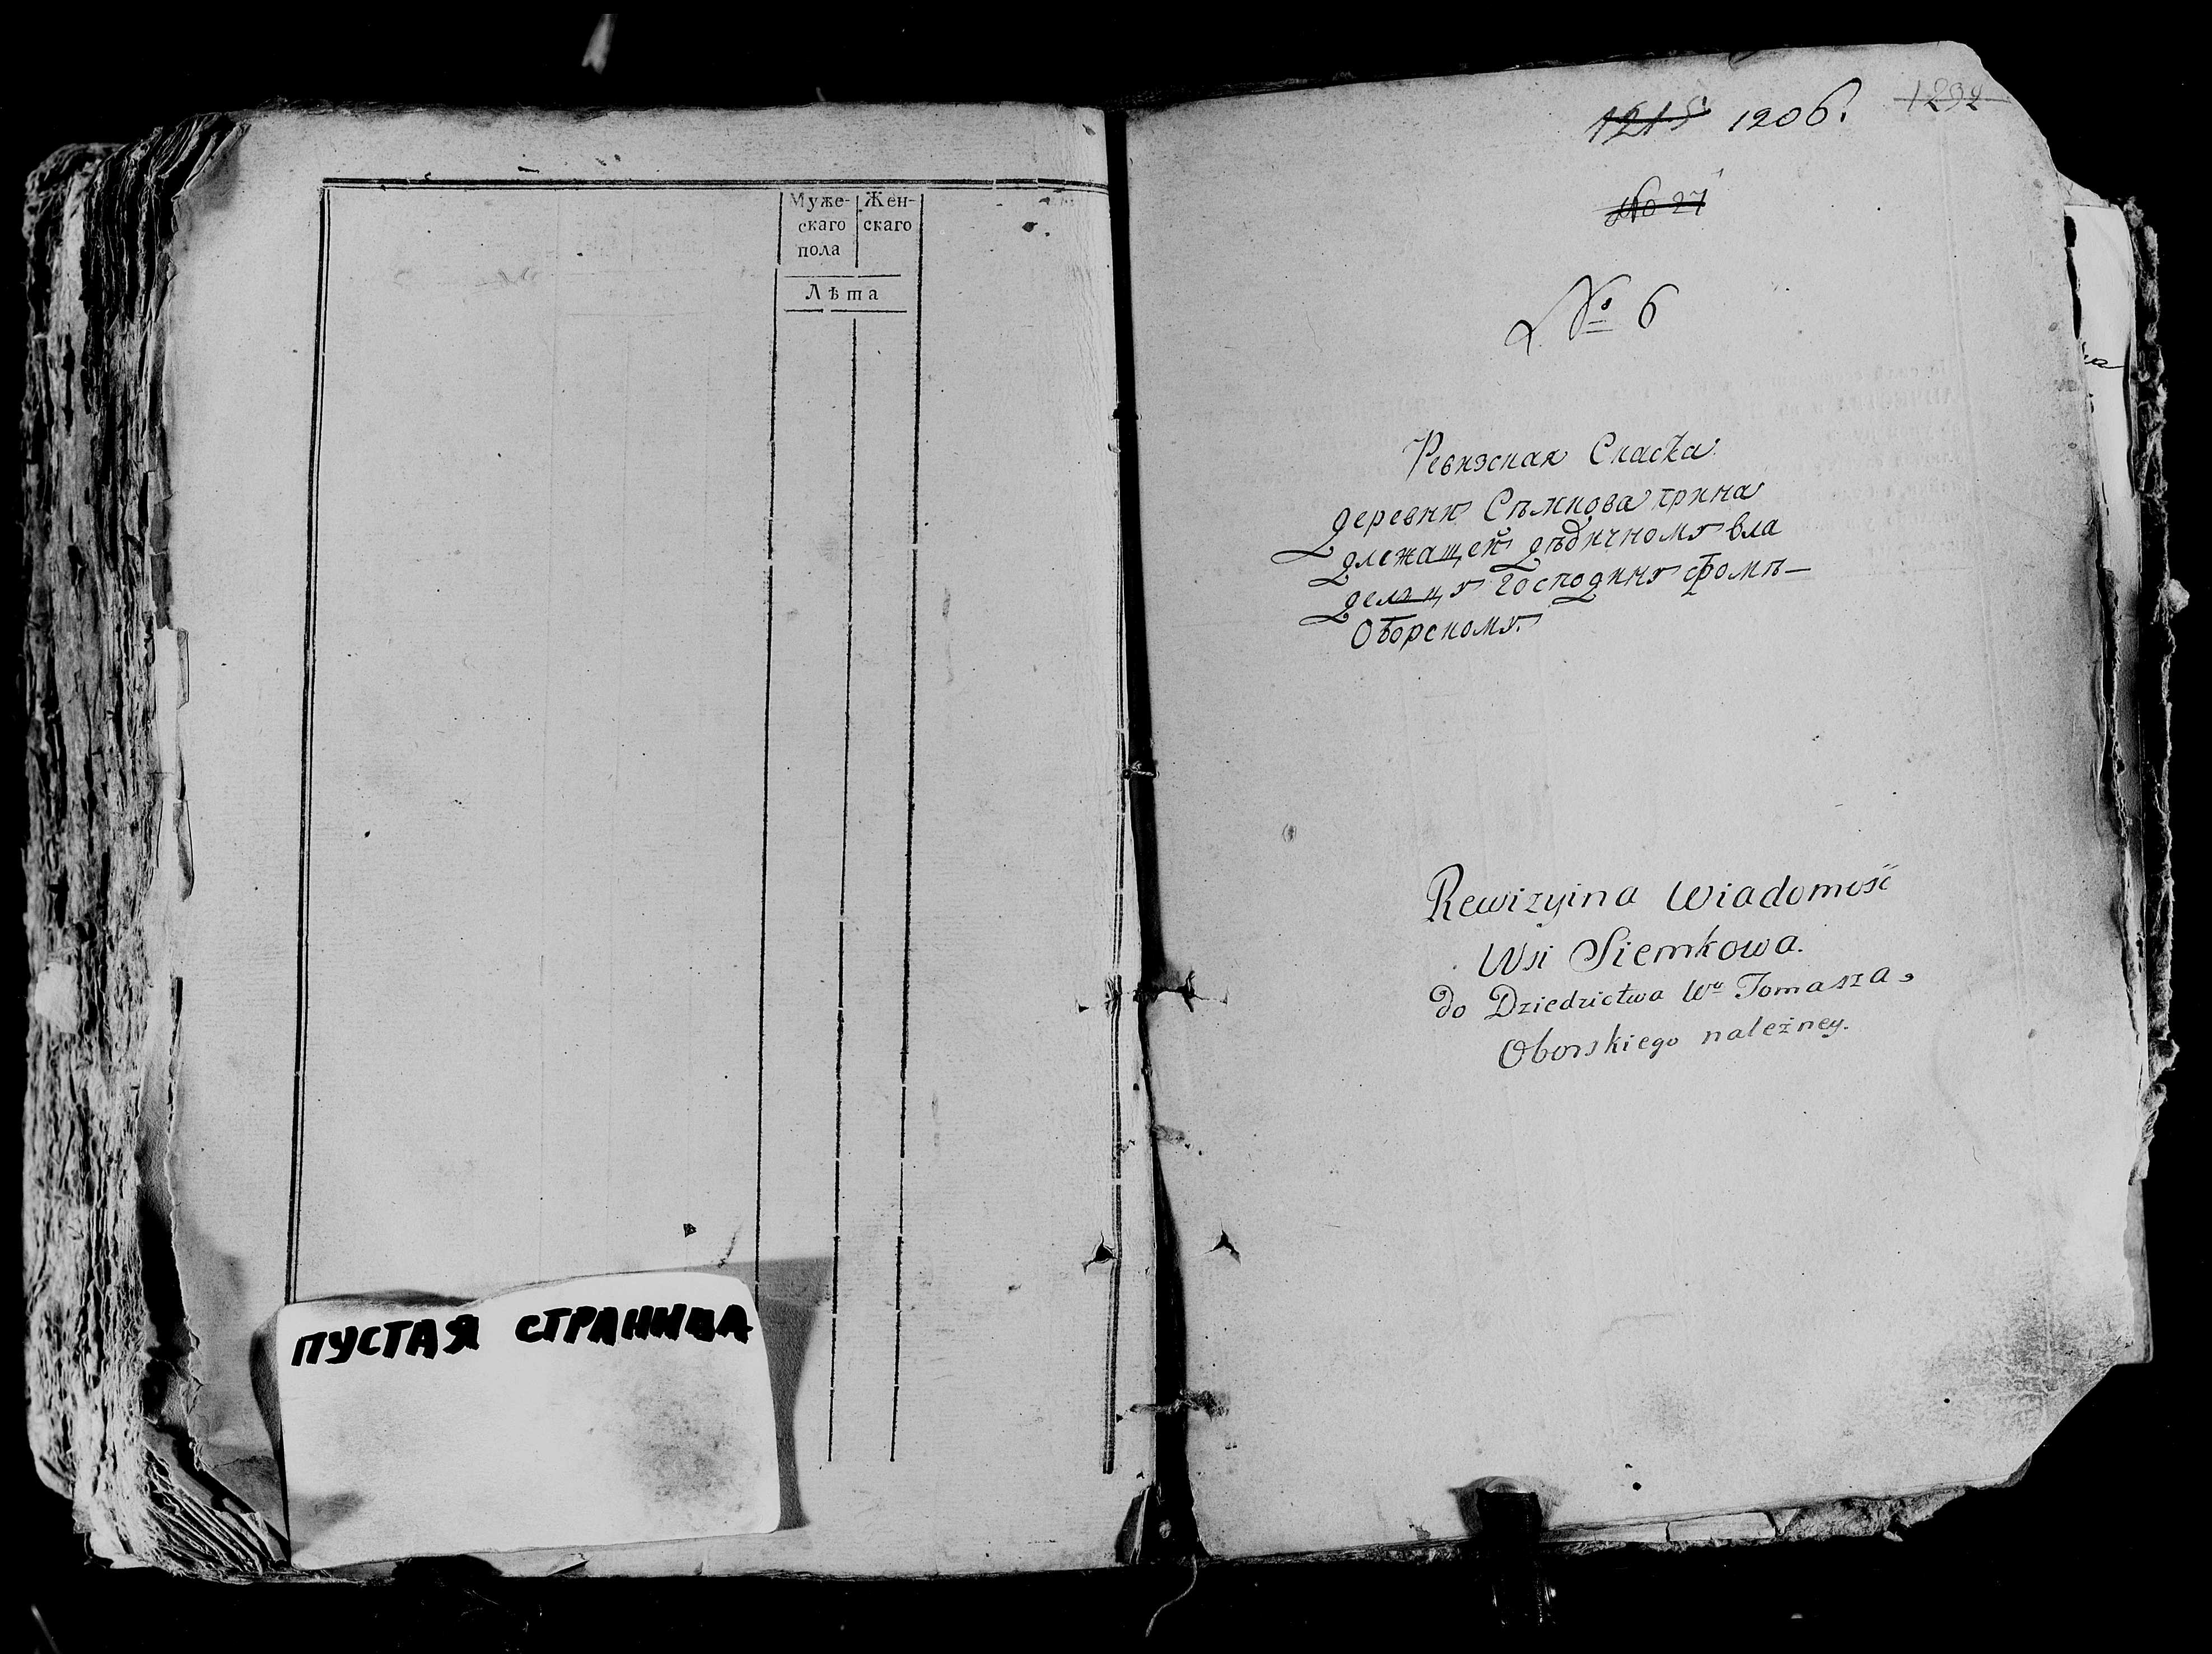 Муже- Жен-
скаго скаго
пола
Лѣта
ПУСТАЯ СТРАНИЦА
1215 1206. 1292
No 27
№ 6
Ревизская Сказка
деревни Сѣмкова прина
длежащей дѣдичному вла
дельцу господину Фомѣ
Оборскому.
Rewizyina Wiadomość
Wsi Siemkowa.
do Dziedzictwa Wo Tomasza
Oborskiego należney.